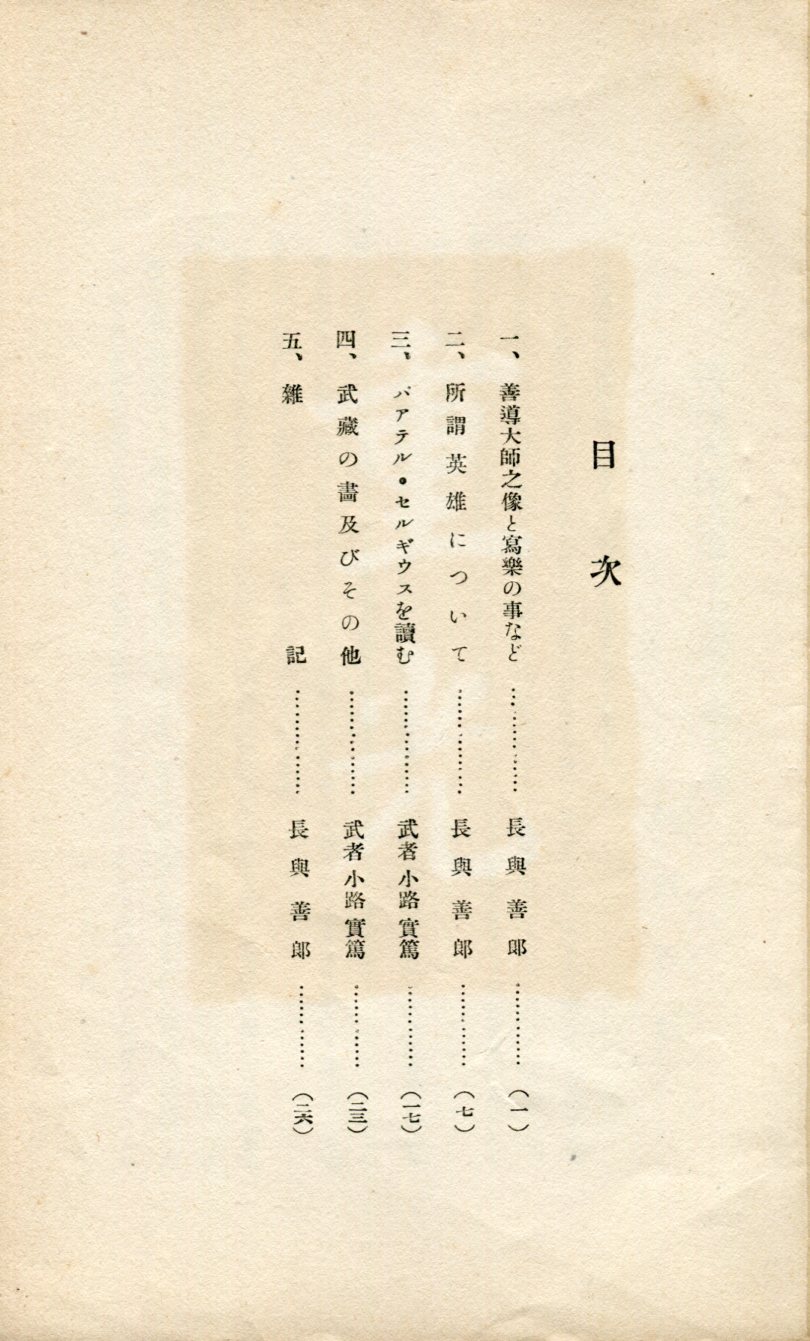 目次
一、善導大師之像と寫樂の事など…………… 長與善郎…………(一)
二、所謂英雄について…………… 長與善郎…………(七)
三、パアテル・セルギウスを讀む…………… 武者小路實篤…………(一七)
四、武藏の畵及びその他…………… 武者小路實篤…………(二三)
五、雜記…………… 長與善郎…………(二六)